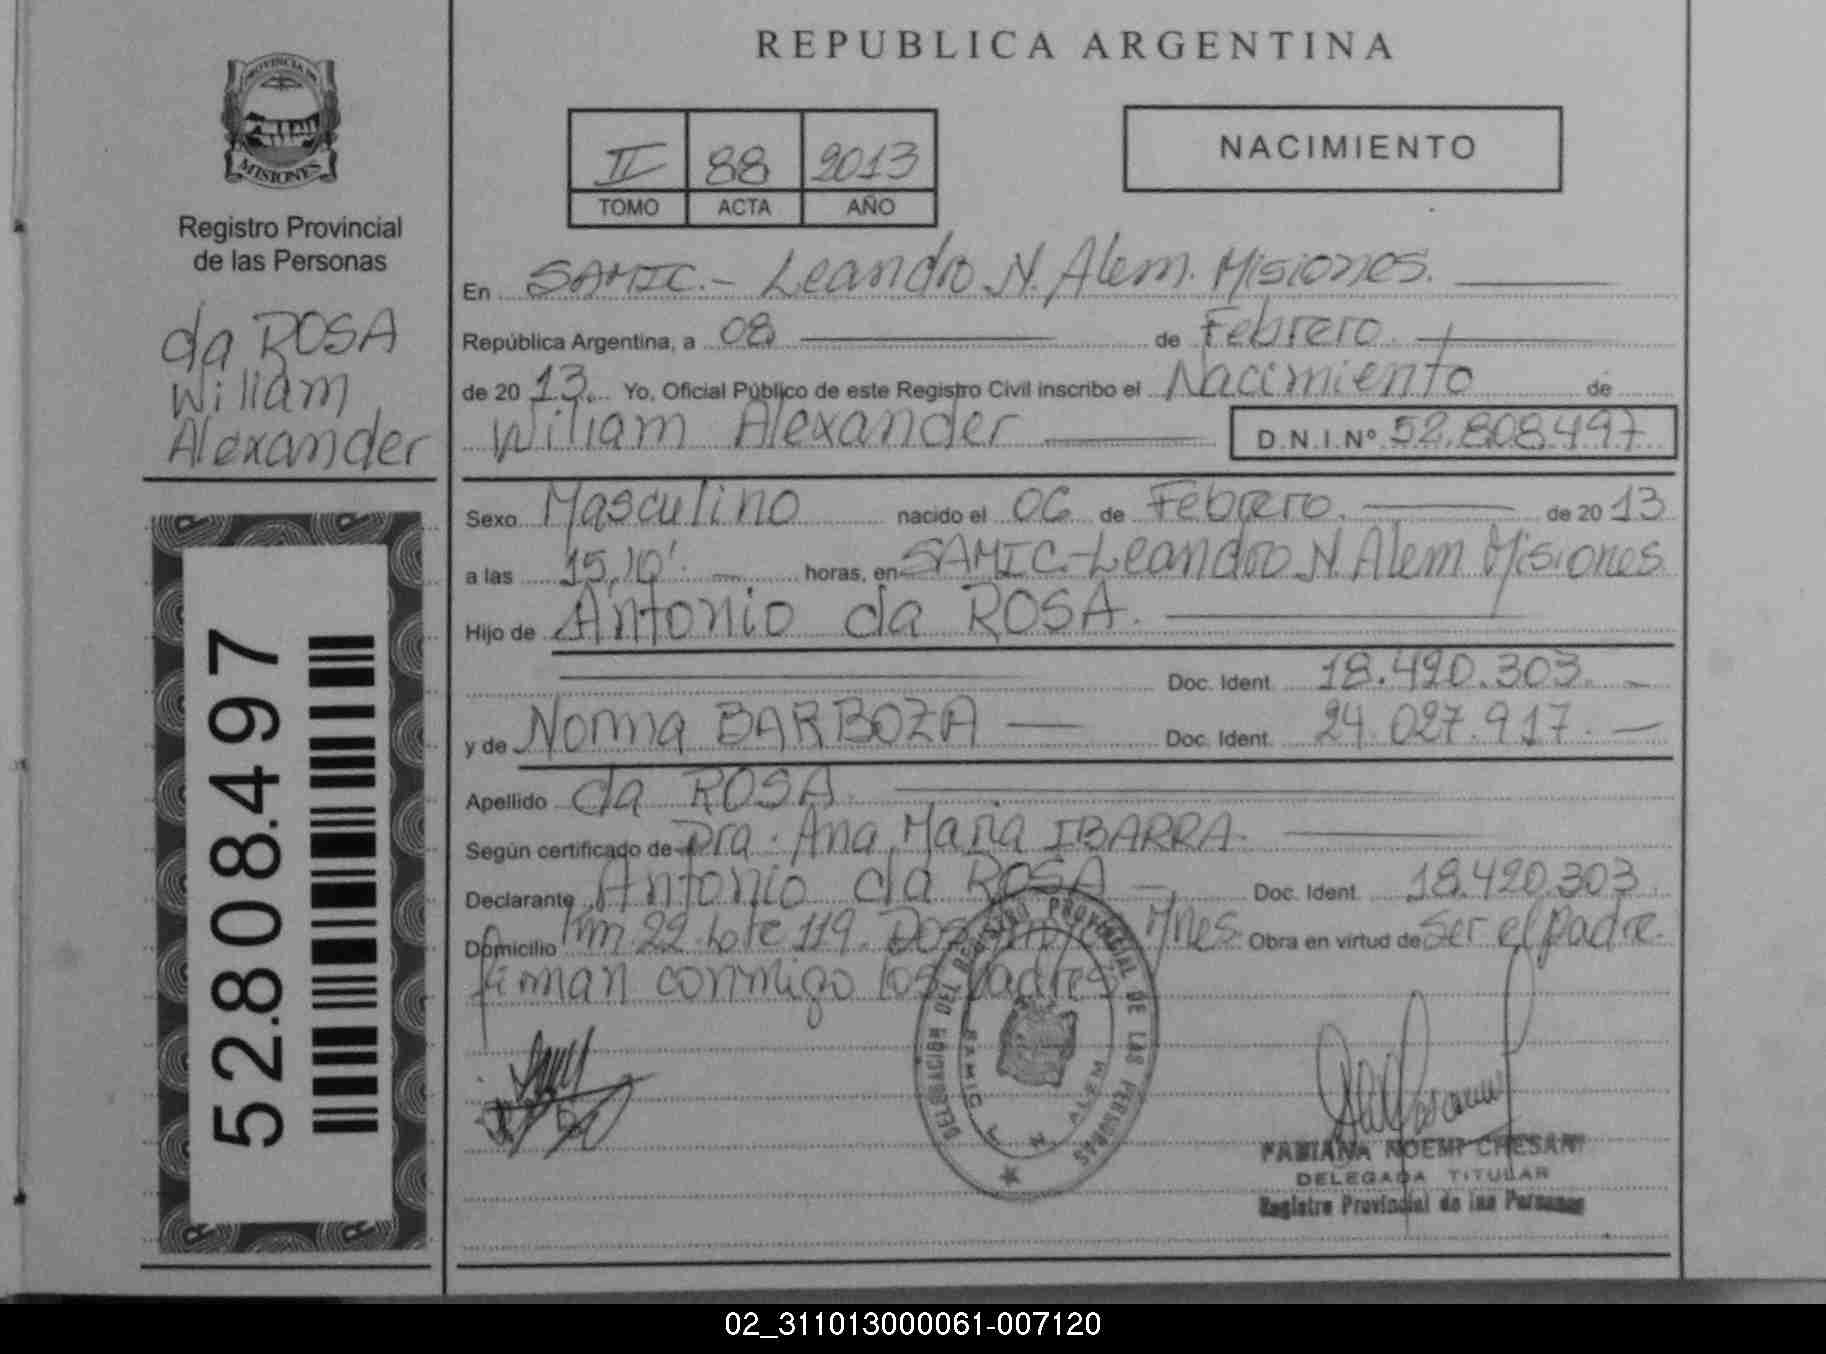 REPUBLICA ARGENTINA
PROVINCIA DE
MISIONES
Registro Provincial
de las Personas
da ROSA
Wiliam
Alexander
52.808.497
II 88 2013
TOMO ACTA AÑO
NACIMIENTO
En SAMIC.- Leandro N. Alem. Misiones.
República Argentina, a 08 de Febrero.
de 20 13. Yo, Oficial Público de este Registro Civil inscribo el Nacimiento de
Wiliam Alexander D.N.I.Nº 52.808.497
Sexo Masculino nacido el 06 de Febrero. de 20 13
a las 15,10'. horas, en SAMIC.-Leandro N. Alem Misiones
Hijo de Antonio da ROSA.
Doc. Ident. 18.420.303.
y de Norma BARBOZA Doc. Ident. 24.027.917.
Apellido da ROSA.
Según certificado de Dra. Ana Maria IBARRA.
Declarante Antonio da ROSA Doc. Ident. 18.420.303
Domicilio Km 22 Lote 119. Mnes. Obra en virtud de ser el padre.
firman conmigo los padres
DELEGACION DEL REGISTRO PROVINCIAL DE LAS PERSONAS
SAMIC L. N. ALEM
FABIANA NOEMI CHESANI
DELEGADA TITULAR
Registro Provincial de las Personas
02_311013000061-007120